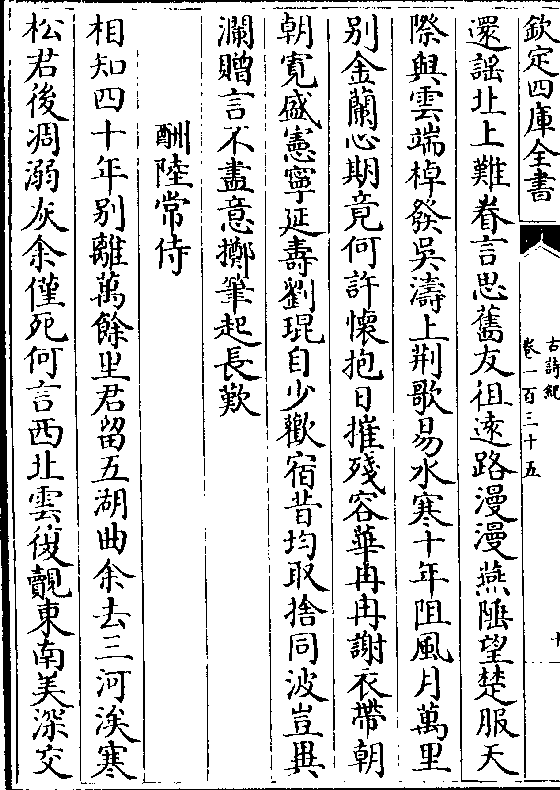 欽定四庫全書
古詩紀
卷一百三十五
十
還謡北上難眷言思舊友徂遠路漫漫燕陲望楚服天
際與雲端棹發吳濤上荆歌易水寒十年阻風月萬里
别金蘭心期竟何許懷抱日摧殘容華冉冉謝衣帶朝
朝寛盛憲寧延壽劉琨自少歡宿昔均取捨同波豈異
瀾贈言不盡意擲筆起長歎
酬陸常侍
相知四十年别離萬餘里君留五湖曲余去三河涘寒
松君後凋溺灰余僅死何言西北雲復覿東南美深交